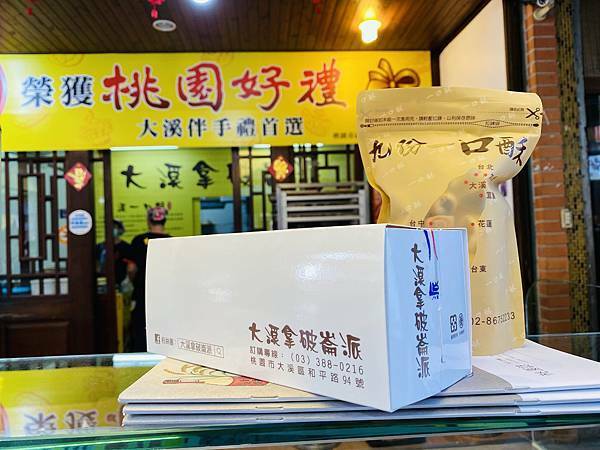 榮獲 桃園好禮
大溪伴手禮首選
大溪拿破崙派
九份一口酥
台北
大溪
台中
花蓮
台東
02-86752233
大溪拿破崙派
訂購專線:(03)388-0216
桃園市大溪區和平路94號
大溪拿破崙派
大溪拿破崙派